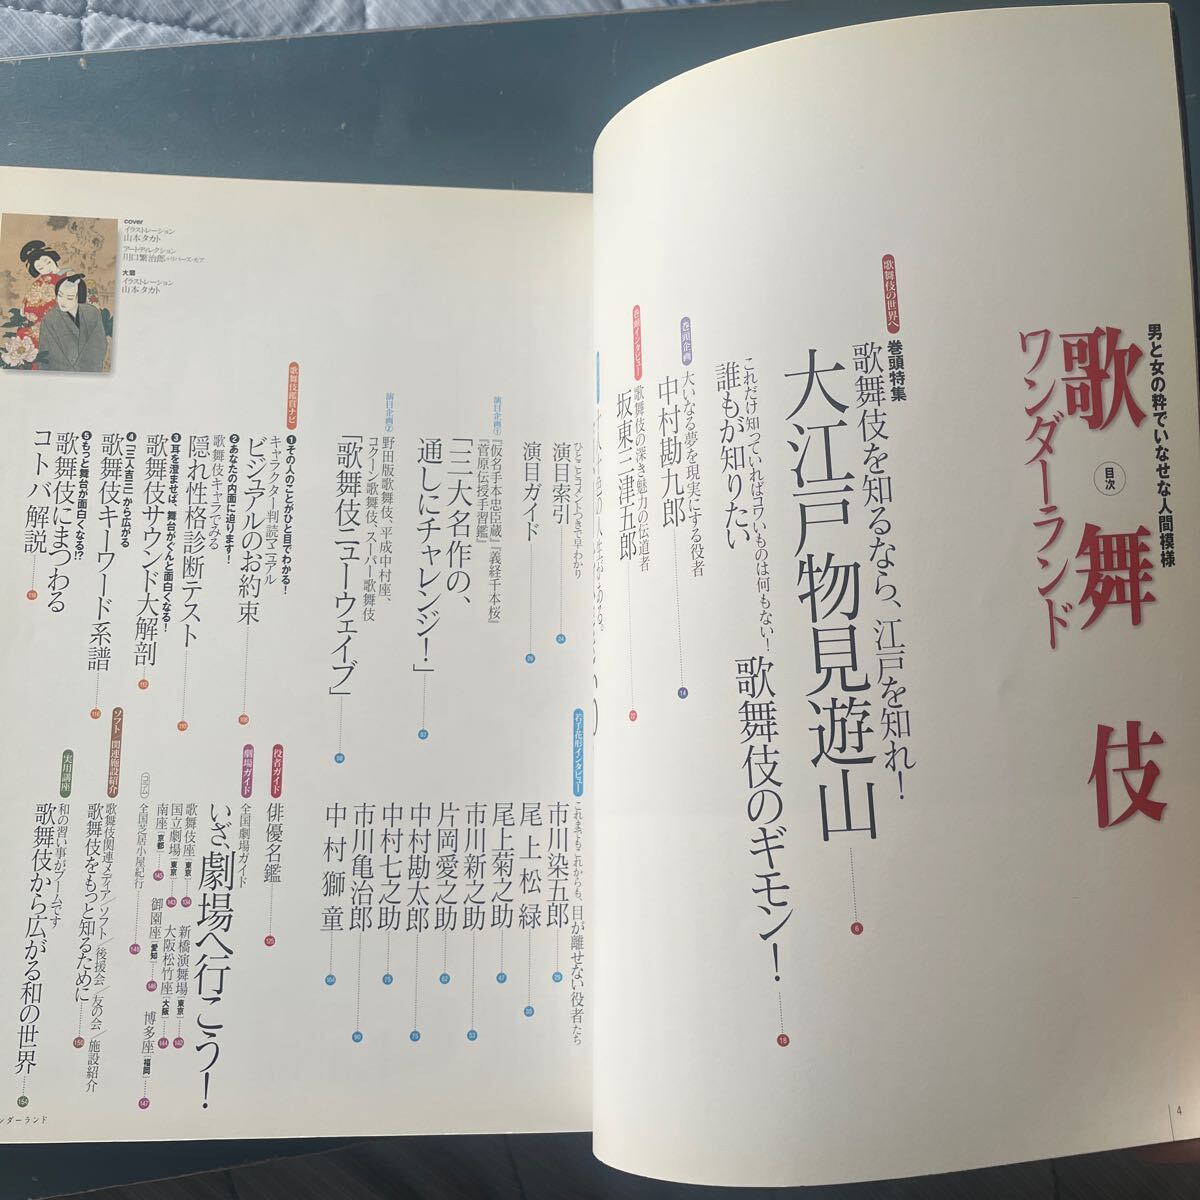 男と女の粋でいなせな人間模様
歌舞伎
ワンダーランド
目次
歌舞伎の世界へ
巻頭特集
歌舞伎を知るなら、江戸を知れ！
大江戸物見遊山
6
これだけ知っていればコワいものは何もない！
誰もが知りたい
歌舞伎のギモン！
18
巻頭企画
大いなる夢を現実にする役者
中村勘九郎
14
巻頭インタビュー
歌舞伎の深き魅力の伝道者
坂東三津五郎
12
4
ひとことコメントつきで早わかり
演目索引
24
演目ガイド
26
演目企画①
『仮名手本忠臣蔵』『義経千本桜』
『菅原伝授手習鑑』
「三大名作の、
通しにチャレンジ！」
83
演目企画②
野田版歌舞伎、平成中村座、
コクーン歌舞伎、スーパー歌舞伎
「歌舞伎ニューウェイブ」
98
若手花形インタビュー
これまでもこれからも、目が離せない役者たち
市川染五郎
29
尾上松緑
35
尾上菊之助
47
市川新之助
53
片岡愛之助
62
中村勘太郎
75
中村七之助
75
市川亀治郎
90
中村獅童
104
歌舞伎鑑賞ナビ
❶その人のことがひと目でわかる！
キャラクター判読マニュアル
ビジュアルのお約束
108
❷あなたの内面に迫ります！
歌舞伎キャラでみる
隠れ性格診断テスト
110
❸耳を澄ませば、舞台がぐんと面白くなる！
歌舞伎サウンド大解剖
112
❹「三人吉三」から広がる
歌舞伎キーワード系譜
116
❺もっと舞台が面白くなる!?
歌舞伎にまつわる
コトバ解説
118
役者ガイド
俳優名鑑
125
劇場ガイド
全国劇場ガイド
いざ、劇場へ行こう！
歌舞伎座［東京］
134
新橋演舞場［東京］
142
国立劇場［東京］
143
大阪松竹座［大阪］
144
南座［京都］
145
御園座［愛知］
146
博多座［福岡］
147
コラム
全国芝居小屋紀行
148
ソフト／関連施設紹介
歌舞伎関連メディア／ソフト／後援会／友の会／施設紹介
歌舞伎をもっと知るために
150
実用講座
和の習い事がブームです
歌舞伎から広がる和の世界
154
cover
イラストレーション
山本タカト
アートディレクション
川口繁治郎＋リバーズ・モア
大扉
イラストレーション
山本タカト
ンダーランド